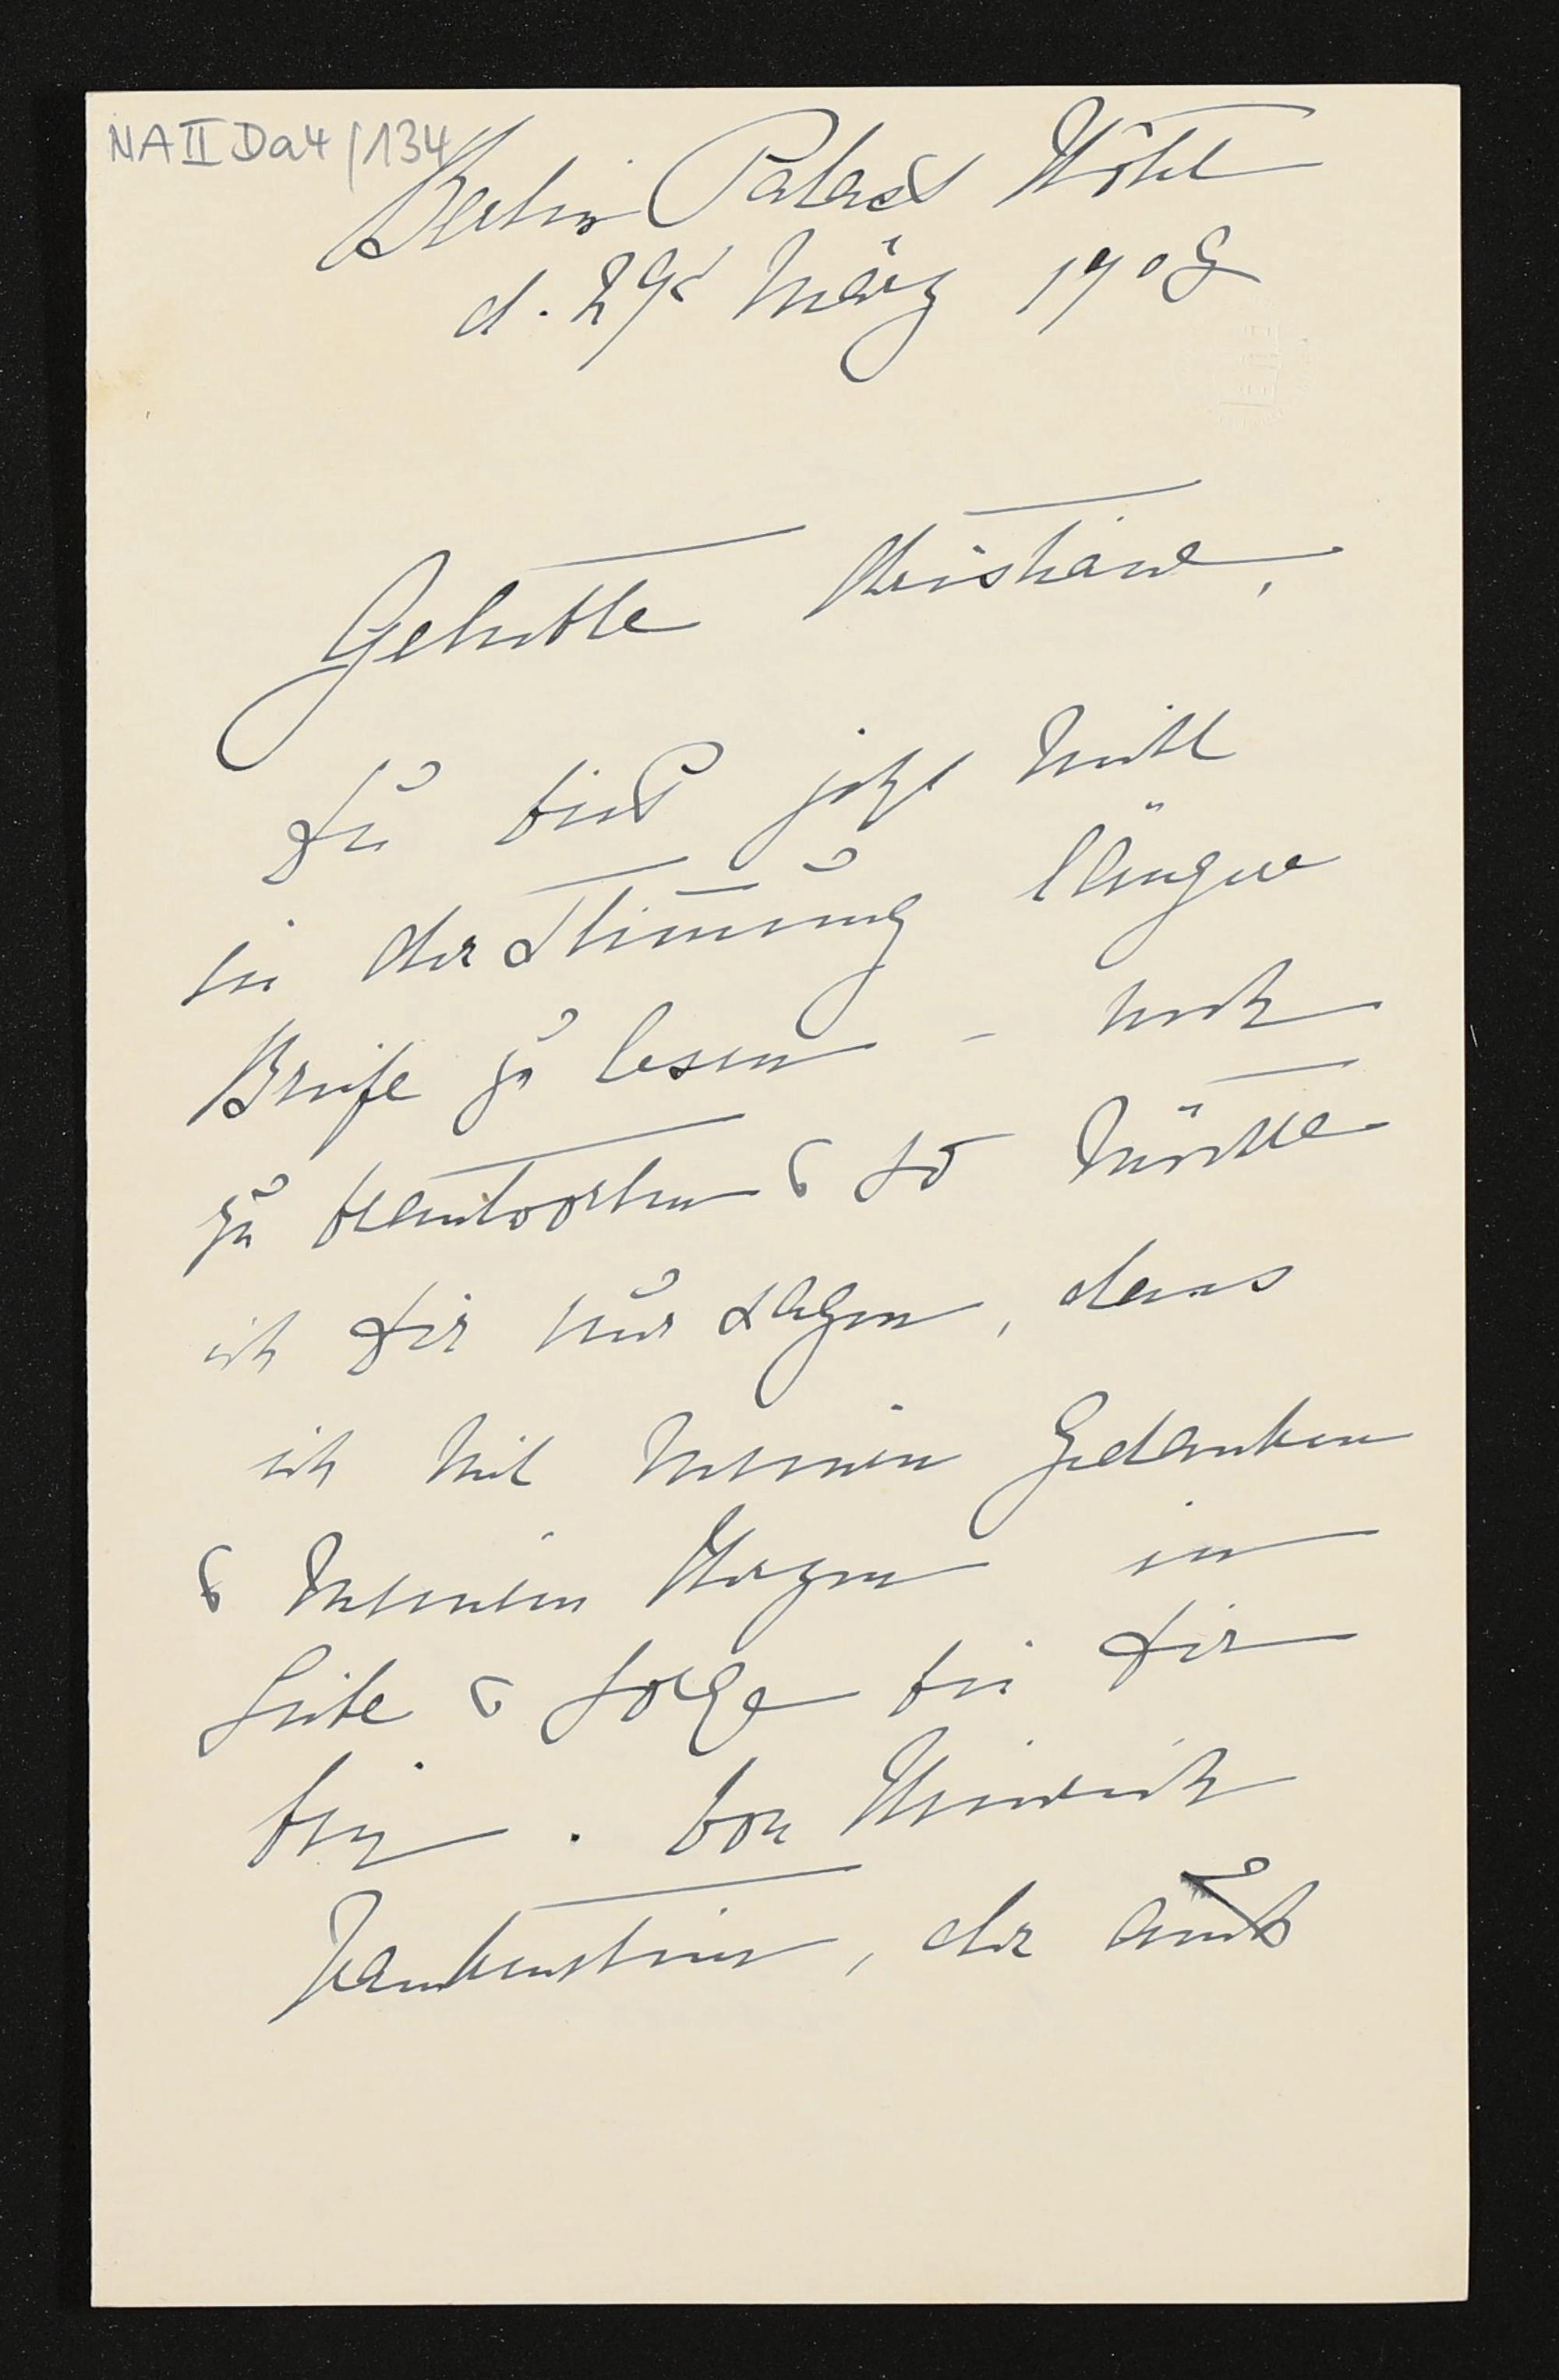 NA II Da 4/134
Berlin Palast Hôtel
d. 29t März 1908
Geliebte Christiane,
Du bist jetzt nicht
in der Stim̅ung längere
Briefe zu lesen – noch
zu beantworten & so möchte
ich Dir nur sagen, dass
ich mit meinen Gedanken
& meinem Herzen in
Liebe & Sorge bei Dir
bin. Von Heinrich
Frankenstein, der auch